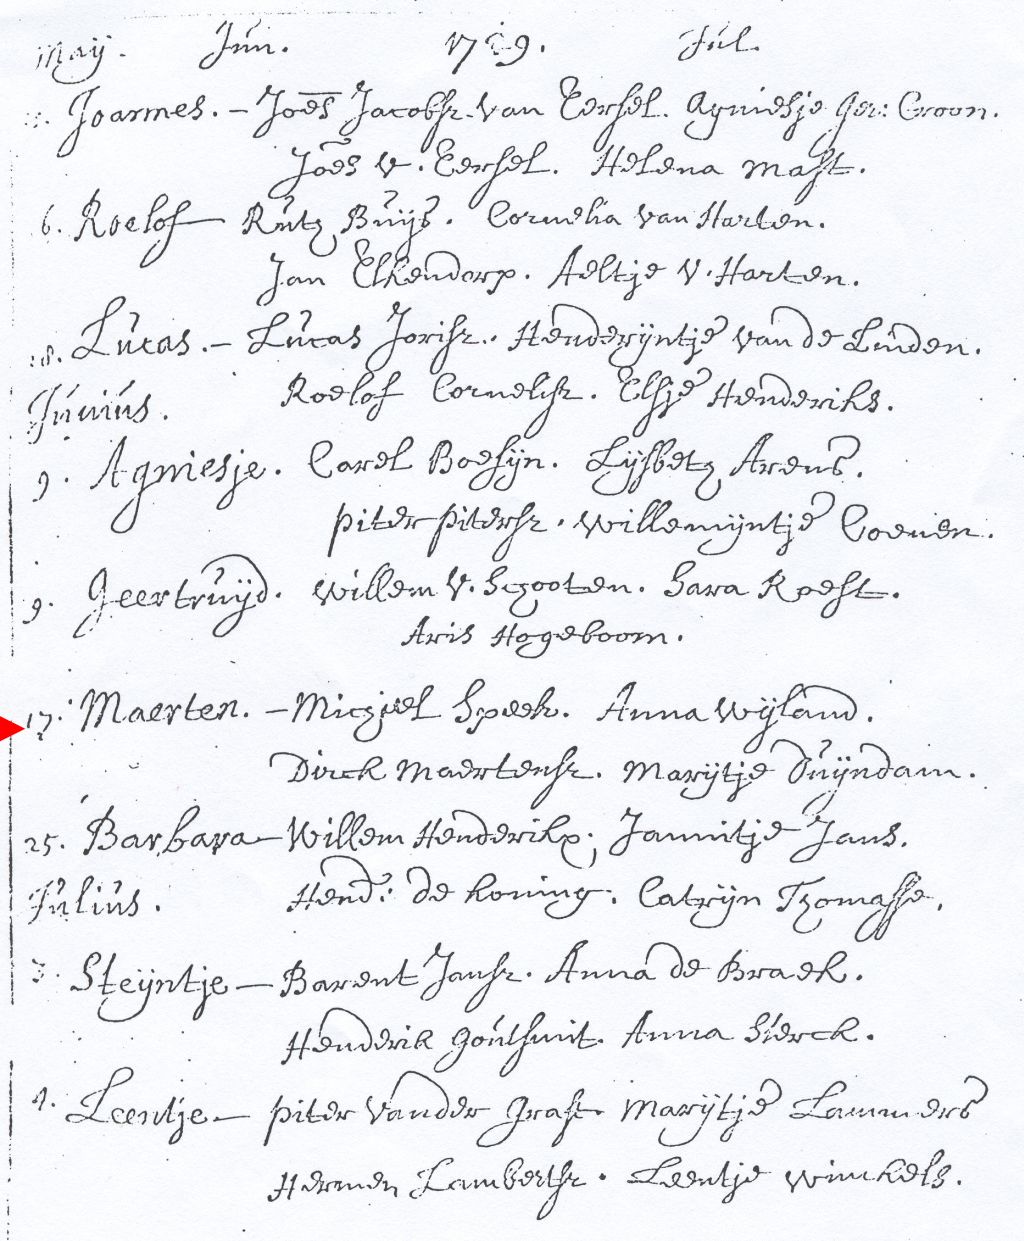 Maÿ. Jun. 1729. Jul.
Joannes. – Joēs Jacobsz. van Eersel. Agniesje Ger: Croon.
Joēs v. Eersel. Helena Mast.
6. Roelof – Rutg Buijs. Cornelia van Harten.
Jan Elkendorp. Aeltje v. Harten.
18. Lucas. – Lucas Jorisz. Henderijntje van de Linden.
Junius. Roelof Cornelisz. Elsje Henderiks.
9. Agniesje. Carel Boesijn. Lijsbetg Arens.
Piter Pitersz. Willemijntje Coenen.
9. Geertruijd. Willem v. Schooten. Sara Roest.
Aris Hogeboom.
17. Maerten. – Michiel Speek. Anna Wijland.
Dirck Maertensz. Marijtje Duijndam.
25. Barbara – Willem Henderikx. Jannitje Jans.
Julius. Hend: de Koning. Catrijn Thomasse.
3. Steijntje – Barent Jansz. Anna de Braek.
Henderik Goutsmit. Anna Sierck.
Leentje – Piter vander Graft. Marijtje Lammers
Hermen Lambertsz. Leentje Winkels.